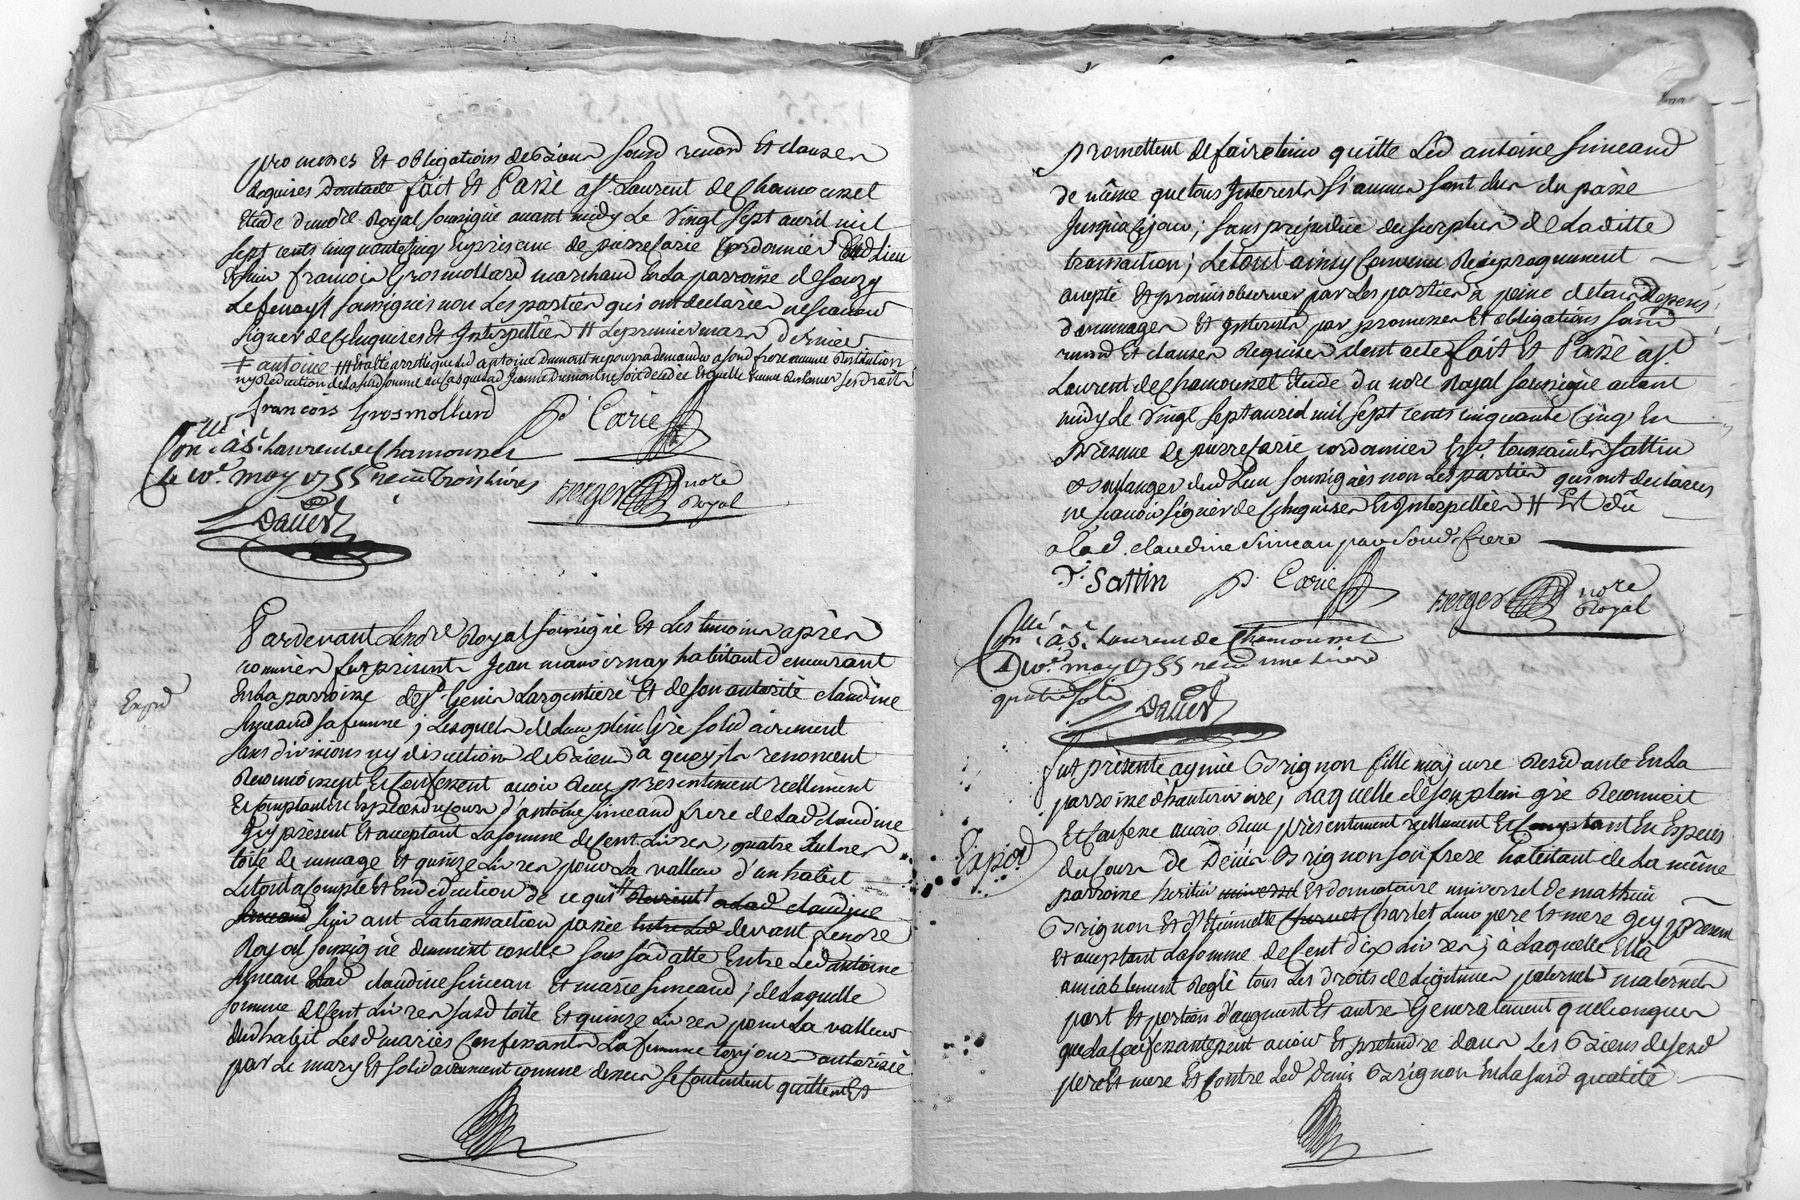 promesses et obligations de biens soub renond et clauses
requises dont acte fait et Passé a St Laurent de Chamousset
etude du nore Royal soussigné avant midy le vingt sept avril mil
sept cents cinquante cinq en presence de pierre Carie cordonnier dud lieu
et sieur francois Grosmollard marchand en la parroisse de souzy
soussignés non les parties qui ont declarées ne scavoir
signer de ce enquises et Interpellées # le premier mars dernier
≠ antoine
ny reduction de la susd somme au cas que lad
francois Grosmollard P. Carie
Conllé à St Laurent de Chamousset
le 1er may 1755 recu trois livres
Berger nore Royal
Dalier
Pardevant Le nore Royal soussigné et Les temoins après
nommés fut presents Jean habitant demeurant
Exped
En la parroisse de St Genis Largentiere et de son autorité claudine
simeand sa femme ; Lesquels de leur plein gré solidairement
sans divisions ny discution de biens à quoy ils renoncent
Reconnoissent et confessent avoir Receu présentement reellement
et comptant en especes du cours d'antoine simeand frere de lad claudine
Icy présent et acceptant La somme de cent Livres, quatre aulnes
toile de menage et quinze Livres, pour La valleur d'un habit
Le tout a compte et En deduction de ce qui # revient a lad claudine
simeand suivant La transaction passée entre Led devant Le nore
Royal soussigné duement contllé sous sa datte Entre Led antoine
simean Lad claudine simean et marie simeand ; de Laquelle
somme de cent Livres susd toile et quinze Livres pour La valleur
dud habit Lesd mariés confessants La femme toujours autorisée
par Le mary et solidairement comme dessus se contentent quittent et
promettent de faire tenir quitte Led antoine simeand
de même que tous Interests si aucuns sont dus du passé
Jusqu'a ce jour ; sans prejudice du surplus de La ditte
transaction ; Le tout ainsy convenu Reciproquement
accepté et promis observer par Les parties à peine de tous depens
dommages et Interests par promesses et obligations soub
renond et clauses Requises dont acte fait et Passé à St
Laurent de Chamousset Etude du nore Royal soussigné avant
midy Le vingt sept avril mil sept cents cinquante cinq En
présence de pierre Carie cordonnier et Sr toussaint Sattin
boulanger dud Lieu soussignés non Les parties qui ont declarées
ne scavoir signer de ce Enquises et Interpellées # Et dû
a lad. claudine simean par soud. frere
T. Sattin P. Carie
Berger nore Royal
Conllé à St Laurent de Chamousset
le 1er may 1755 recu une livre
quatre sols
Dalier
fut présente aymée Brignon fille majeure Residante En La
parroisse d'hauterivoire, Laquelle de son plein gré Reconnoit
Et confesse avoir Receu présentement reellement et comptant En Especes
Exped
du cours de Denis Brignon son frere habitant de La même
parroisse heritier universel et donnataire universel de mathieu
Brignon et d'Etiennette Charlet Leur père et mere Icy present
et acceptant La somme de Cent dix Livres ; à Laquelle Il a
amiablement Reglé tous Les droits de Legitimes paternels maternels
part et portion d'augment et autres Generalement quelconques
que La confessante peut avoir et pretendre dans Les Biens desesd
père et mere et contre Led Denis Brignon En La susd qualité